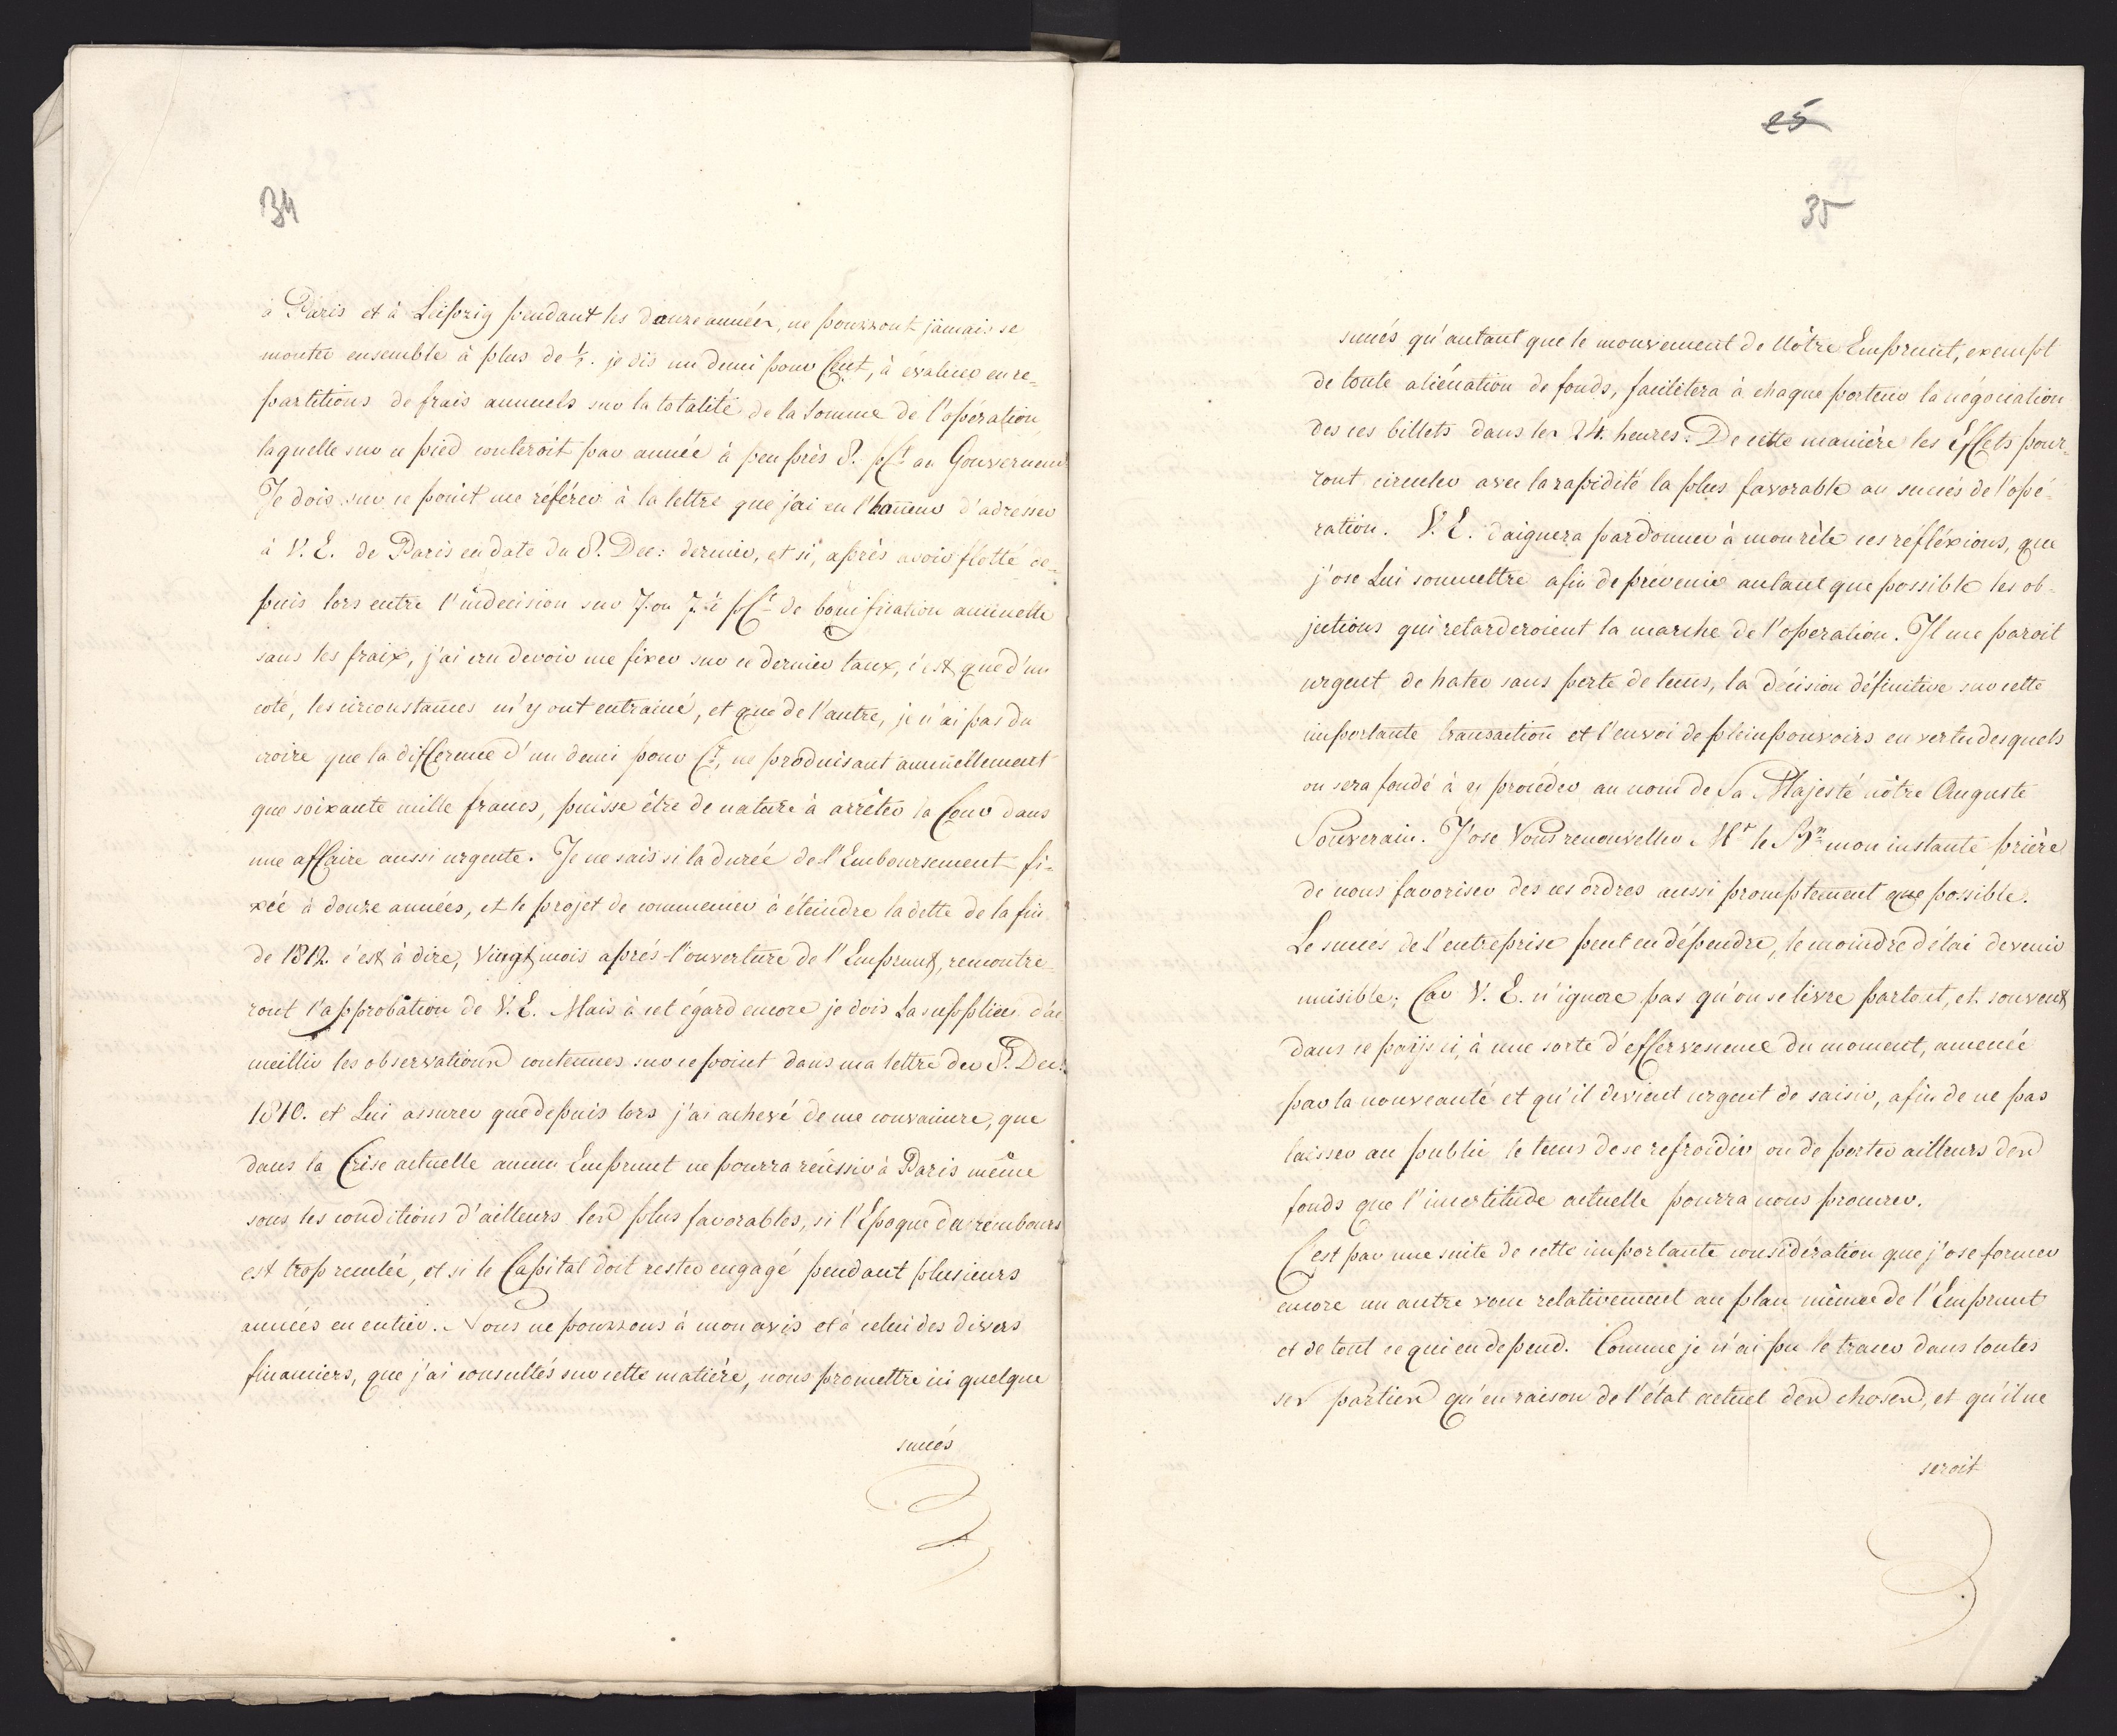 34
à Paris et à Leipzig pendant les douze années, ne pourront jamais se
monter ensemble à plus de ½. je dis un demi pour Cent, à évaluer en re-
partitions de frais annuels sur la totalité de la somme de l'opération,
laquelle sur ce pied couteroit par année à peu près 8. pCt. au Gouvernem.t
Je dois sur ce point me référer à la lettre que j'ai eu l'honneur d'adresser
à V. E. de Paris en date du 8. Dec: dernier, et si, après avoir flotté de-
puis lors entre l'indecision sur 7. ou 7.½ pCt. de bonification annuelle
sans les fraix, j'ai cru devoir me fixer sur ce dernier taux, c'est que d'un
coté, les circonstances m'y ont entrainé, et que de l'autre, je n'ai pas du
croire que la difference d'un demi pour Ct., ne produisant annuellement
que soixante mille francs, puisse être de nature à arrêter la Cour dans
une affaire aussi urgente. Je ne sais si la durée de l'Emboursement fi-
xée à douze années, et le projet de commencer à éteindre la dette de la fin
de 1812. c'est à dire, vingt mois aprés l'ouverture de l'Emprunt, rencontre-
ront l'approbation de V. E. Mais à cet égard encore je dois La supplier d'ac
cueillir les observations contenues sur ce point dans ma lettre du 8. Dec:
1810. et Lui assurer que depuis lors j'ai achevé de me convaincre, que
dans la Crise actuelle aucun Emprunt ne pourra réussir à Paris même
sous les conditions d'ailleurs les plus favorables, si l'Epoque du rembours
est trop reculée, et si le Capital doit rester engagé pendant plusieurs
années en entier. Nous ne pourrons à mon avis et à celui des divers
financiers, que j'ai consultés sur cette matière, nous promettre ici quelque
succés
25
35
succés qu'autant que le mouvement de Nôtre Emprunt, exempt
de toute aliénation de fonds, facilitera à chaque porteur la négociation
des ces billets dans les 24. heures. De cette manière les Effets pour-
ront circuler avec la rapidité la plus favorable au succés de l'opé-
ration. V. E. daignera pardonner à mon zèle ces réfléxions, que
j'ose Lui soumettre afin de prévenir autant que possible les ob-
jections qui retarderoient la marche de l'operation. Il me paroit
urgent de hater sans perte de tems, la décision définitive sur cette
importante transaction et l'envoi de pleinpouvoirs en vertu desquels
on sera fondé à y procéder au nom de Sa Majesté nôtre Auguste
Souverain. J'ose Vous renouveller Mr le Bn mon instante prière
de nous favoriser des ces ordres aussi promptement que possible.
Le succés de l'entreprise peut en dépendre, le moindre délai devenir
nuisible; Car V. E. n'ignore pas qu'on se livre partout, et souvent
dans ce païs ci, à une sorte d'effervescence du moment, amenée
par la nouveauté et qu'il devient urgent de saisir, afin de ne pas
laisser au public le tems de se refroidir ou de porter ailleurs des
fonds que l'incertitude actuelle pourra nous procurer.
C'est par une suite de cette importante considération que j'ose former
encore un autre voeu relativement au plan même de l'Emprunt
et de tout ce qui en depend. Comme je n'ai pu le tracer dans toutes
ses parties qu'en raison de l'état actuel des choses, et qu'il ne
seroit